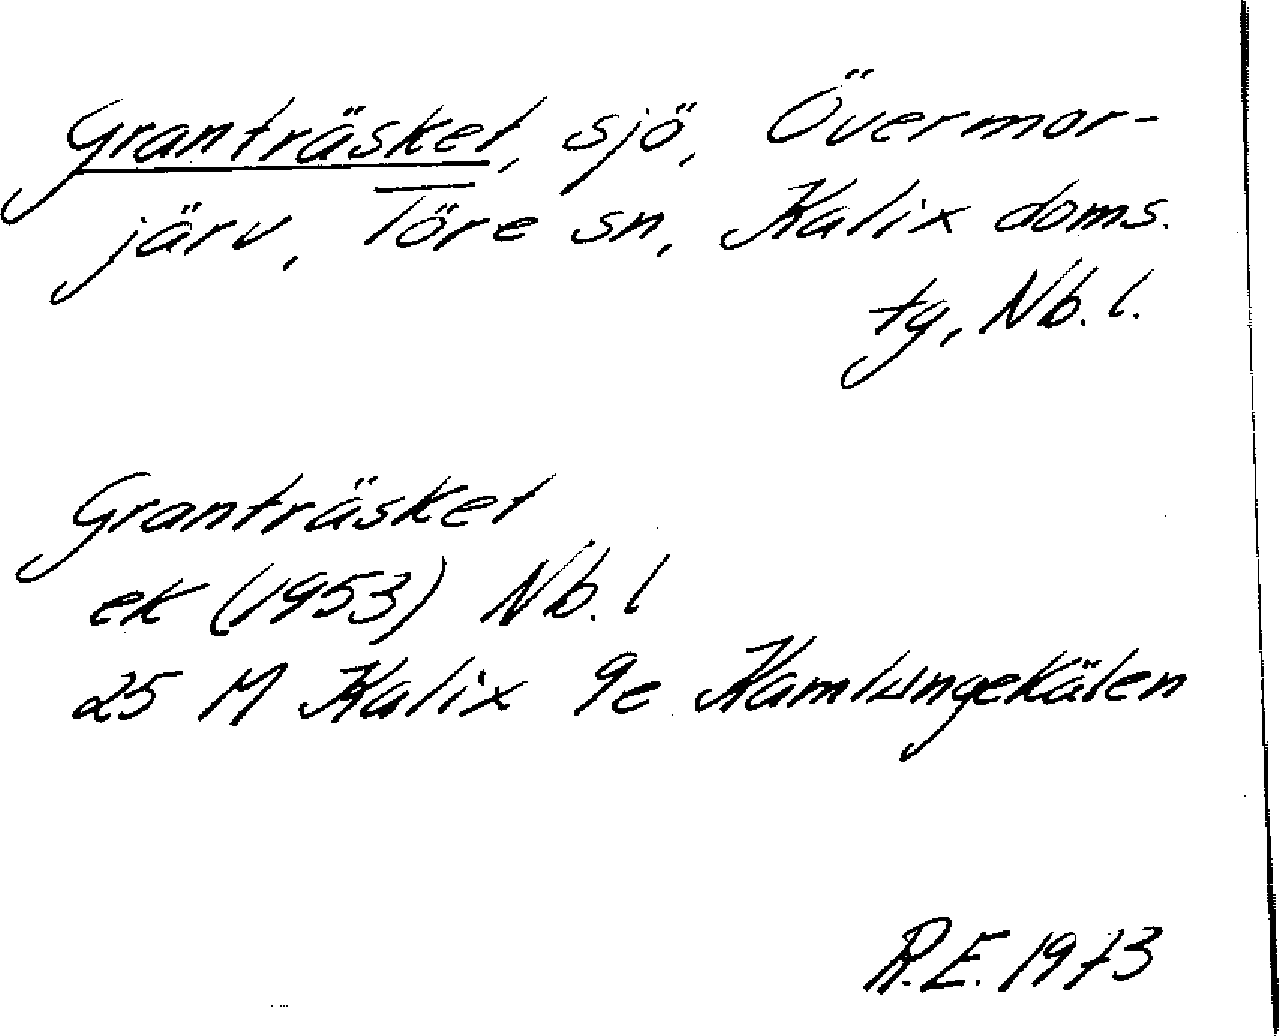 Granträsket, sjö, Övermor-
järv, Töre sn, Kalix doms.
tg, Nb. l.
Granträsket
ek (1953) Nb. l
25 M Kalix 9e Kamlungekälen
R.E. 1973